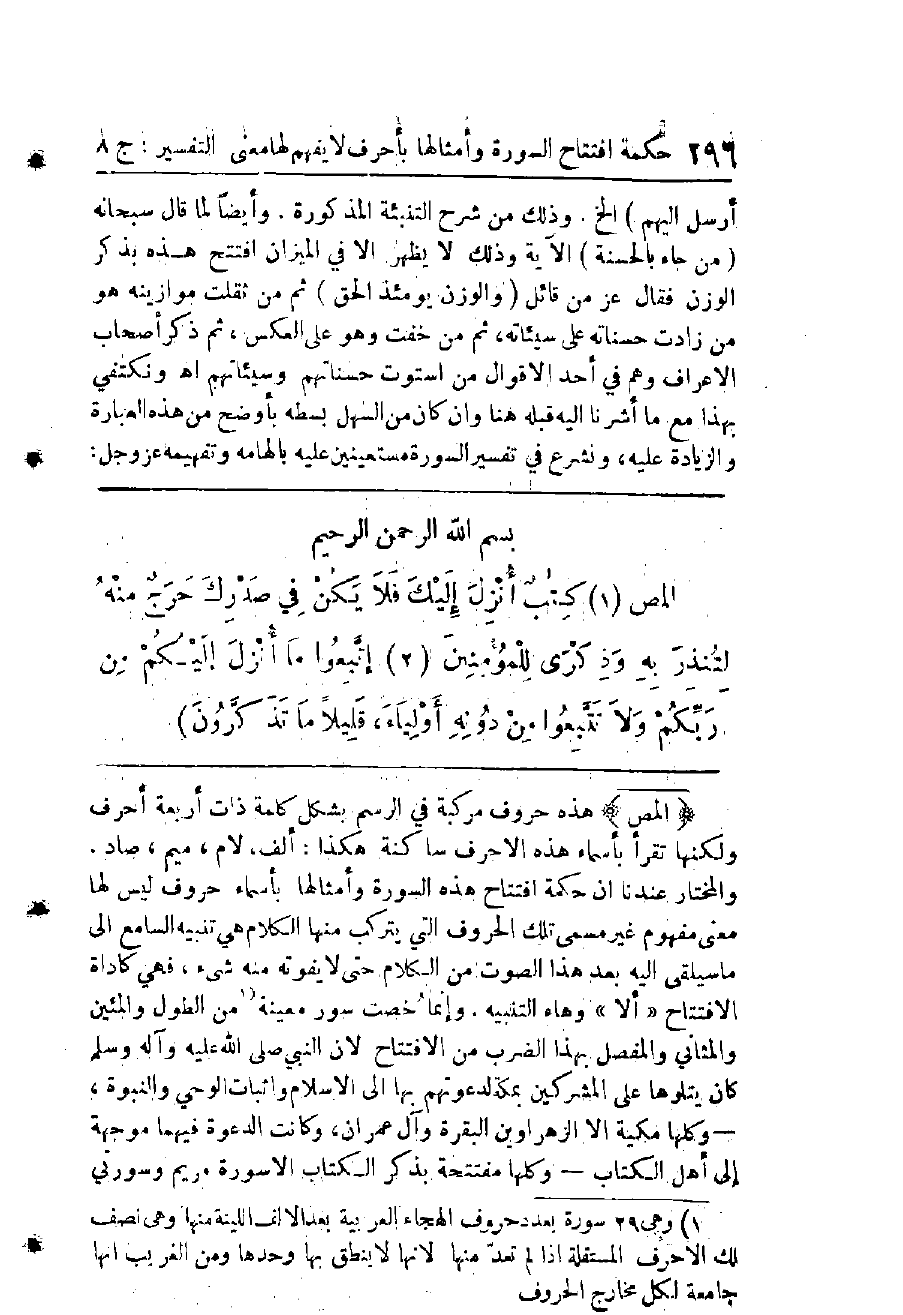 ٢٩٦ حكمة افتتاح السورة وأمثالها بأحرف لا يفهم لها معنى التفسير : ج ٨
أرسل اليهم ) الخ . وذلك من شرح التنبئة المذكورة . وأيضاً لما قال سبحانه
( من جاء بالحسنة ) الآية وذلك لا يظهر الا في الميزان افتتح هـذه بذكر
الوزن فقال عز من قائل ( والوزن يومئذ الحق ) ثم من ثقلت موازينه هو
من زادت حسناته على سيئاته، ثم من خفت وهو على العكس ، ثم ذكر أصحاب
الاعراف وهم في أحد الاقوال من استوت حسناتهم وسيئاتهم اهـ ونكتفي
بهذا مع ما أشرنا اليه قبله هنا وان كان من السهل بسطه بأوضح من هذه العبارة
والزيادة عليه، ونشرع في تفسير السورة مستعينين عليه بالهامه وتفهيمه عز وجل :
بسم الله الرحمن الرحيم
المص (١) كِتٰبٌ أُنْزِلَ إِلَيْكَ فَلَا يَكُنْ فِي صَدْرِكَ حَرَجٌ مِنْهُ
لِتُنذِرَ بِهِ وَذِكْرَى لِلْمُؤْمِنِينَ (٢) إِتَّبِعُوا مَا أُنْزِلَ إِلَيْـكُمْ مِن
رَبِّكُمْ وَلاَ تَتَّبِعُوا مِنْ دُونِهِ أَوْلِيَاءَ، قَلِيلاً مَا تَذَكَّرُونَ )
﴿ المص ﴾ هذه حروف مركبة في الرسم بشكل كلمة ذات أربعة أحرف
ولكنها تقرأ بأسماء هذه الاحرف ساكنة هكذا : ألف، لام ، ميم ، صاد .
والمختار عندنا ان حكمة افتتاح هذه السورة وأمثالها بأسماء حروف ليس لها
معنى مفهوم غير مسمى تلك الحروف التي يتركب منها الكلام هي تنبيه السامع الى
ماسيلقى اليه بعد هذا الصوت من الكلام حتى لا يفوته منه شيء ، فهي كاداة
الافتتاح « ألا » وهاء التنبيه . وإنما خصت سور معينة ١) من الطول والمئين
والمثاني والمفصل بهذا الضرب من الافتتاح لان النبي صلى الله عليه وآله وسلم
كان يتلوها على المشركين بمكة لدعوتهم بها الى الاسلام واثبات الوحي والنبوة ،
— وكلها مكية الا الزهراوين البقرة وآل عمران، وكانت الدعوة فيهما موجهة
إلى أهل الكتاب — وكلها مفتتحة بذكر الكتاب الا سورة مريم وسورتي
١) وهي ٢٩ سورة بعدد حروف الهجاء العربية بعد الالف اللينة منها وهي نصف
لك الاحرف المستقلة اذا لم تعدّ منها لانها لا ينطق بها وحدها ومن الغريب انها
جامعة لكل مخارج الحروف